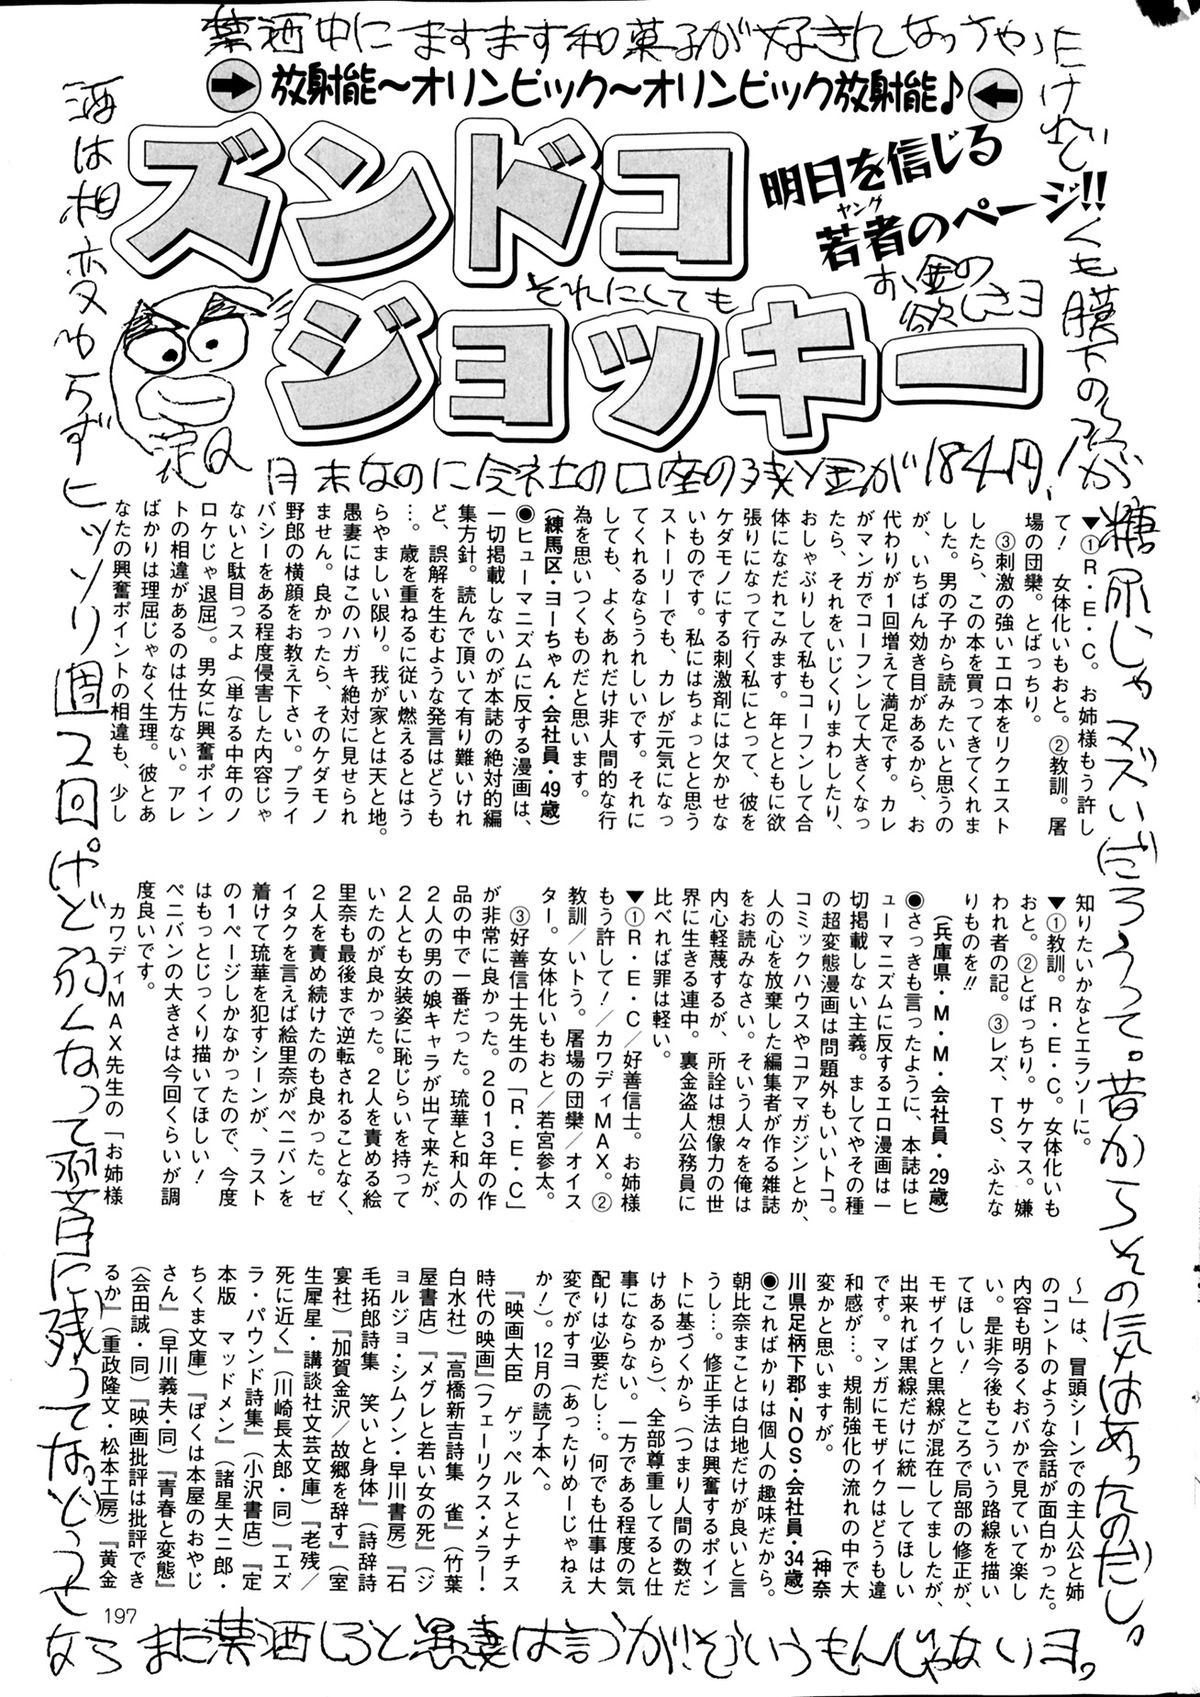 禁酒中にますます和菓子が好きんなっちゃった
けれど
➡放射能〜オリンピック〜オリンピック放射能♪⬅
ズンドコ
ジョッキー
明日を信じる
若者のページ!!
ヤング
それにしても
お金の
欲しさヨ
月末なのに会社の口座の残金が184円!
糖尿じゃマズいだろうって。昔からその気はあったのだし。
酒は相変わらずヒッソリ週2回。けど弱くなって翌日に残ってなっじょうせ
ならまた禁酒しろと愚妻は言うが、そういうもんじゃないヨ。
▼①R・E・C。お姉様もう許し
て!　女体化いもおと。②教訓。屠
場の団欒。とばっちり。
③刺激の強いエロ本をリクエスト
したら、この本を買ってきてくれま
した。男の子から読みたいと思うの
が、いちばん効き目があるから、お
代わりが1回増えて満足です。カレ
がマンガでコーフンして大きくなっ
たら、それをいじくりまわしたり、
おしゃぶりして私もコーフンして合
体になだれこみます。年とともに欲
張りになって行く私にとって、彼を
ケダモノにする刺激剤には欠かせな
いものです。私にはちょっとと思う
ストーリーでも、カレが元気になっ
てくれるならうれしいです。それに
しても、よくあれだけ非人間的な行
為を思いつくものだと思います。
（練馬区・ヨーちゃん・会社員・49歳）
◉ヒューマニズムに反する漫画は、
一切掲載しないのが本誌の絶対的編
集方針。読んで頂いて有り難いけれ
ど、誤解を生むような発言はどうも
…。歳を重ねるに従い燃えるとはう
らやましい限り。我が家とは天と地。
愚妻にはこのハガキ絶対に見せられ
ません。良かったら、そのケダモノ
野郎の横顔をお教え下さい。プライ
バシーをある程度侵害した内容じゃ
ないと駄目っスよ（単なる中年のノ
ロケじゃ退屈）。男女に興奮ポイン
トの相違があるのは仕方ない。アレ
ばかりは理屈じゃなく生理。彼とあ
なたの興奮ポイントの相違も、少し
知りたいかなとエラソーに。
▼①教訓。R・E・C。女体化いも
おと。②とばっちり。サケマス。嫌
われ者の記。③レズ、TS、ふたな
りものを!!
（兵庫県・M・M・会社員・29歳）
◉さっきも言ったように、本誌はヒ
ューマニズムに反するエロ漫画は一
切掲載しない主義。ましてやその種
の超変態漫画は問題外もいいトコ。
コミックハウスやコアマガジンとか、
人の心を放棄した編集者が作る雑誌
をお読みなさい。そいう人々を俺は
内心軽蔑するが、所詮は想像力の世
界に生きる連中。裏金盗人公務員に
比べれば罪は軽い。
▼①R・E・C／好善信士。お姉様
もう許して！／カワディMAX。②
教訓／いトう。屠場の団欒／オイス
ター。女体化いもおと／若宮参太。
③好善信士先生の「R・E・C」
が非常に良かった。2013年の作
品の中で一番だった。琉華と和人の
2人の男の娘キャラが出て来たが、
2人とも女装姿に恥じらいを持って
いたのが良かった。2人を責める絵
里奈も最後まで逆転されることなく、
2人を責め続けたのも良かった。ゼ
イタクを言えば絵里奈がペニバンを
着けて琉華を犯すシーンが、ラスト
の1ページしかなかったので、今度
はもっとじっくり描いてほしい！
ペニバンの大きさは今回くらいが調
度良いです。
カワディMAX先生の「お姉様
〜」は、冒頭シーンでの主人公と姉
のコントのような会話が面白かった。
内容も明るくおバカで見ていて楽し
い。是非今後もこういう路線を描い
てほしい！　ところで局部の修正が、
モザイクと黒線が混在してましたが、
出来れば黒線だけに統一してほしい
です。マンガにモザイクはどうも違
和感が…。規制強化の流れの中で大
変かと思いますが。　（神奈
川県足柄下郡・NOS・会社員・34歳）
◉こればかりは個人の趣味だから。
朝比奈まことは白地だけが良いと言
うし…。修正手法は興奮するポイン
トに基づくから（つまり人間の数だ
けあるから）、全部尊重してると仕
事にならない。一方である程度の気
配りは必要だし…。何でも仕事は大
変でがすヨ（あったりめーじゃねえ
か！）。12月の読了本へ。
『映画大臣　ゲッベルスとナチス
時代の映画』（フェーリクス・メラー・
白水社）『高橋新吉詩集　雀』（竹葉
屋書店）『メグレと若い女の死』（ジ
ョルジョ・シムノン・早川書房）『石
毛拓郎詩集　笑いと身体』（詩辞詩
宴社）『加賀金沢／故郷を辞す』（室
生犀星・講談社文芸文庫）『老残／
死に近く』（川崎長太郎・同）『エズ
ラ・パウンド詩集』（小沢書店）『定
本版　マッドメン』（諸星大二郎・
ちくま文庫）『ぼくは本屋のおやじ
さん』（早川義夫・同）『青春と変態』
（会田誠・同）『映画批評は批評でき
るか』（重政隆文・松本工房）『黄金
197